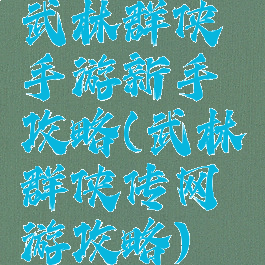 武林群侠
手游新手
攻略(武林
群侠传网
游攻略)